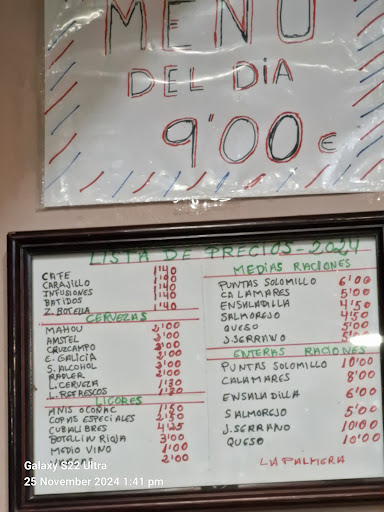 MENÚ
DEL DiA
9'00 €
LISTA DE PRECIOS-2024
CAFE 1'40
CARAJILLO 1'90
INFUSIONES 1'40
BATIDOS 1'90
Z. BOTELLA 1'40
CERVEZAS
MAHOU 2'00
AMSTEL 2'00
CRUZCAMPO 2'00
E. GALICIA 2'00
S. ALCOHOL 2'00
RADLER 2'00
L. CERVEZA 1'30
L. REFRESCOS 1'30
LICORES
ANIS O COÑAC 1'50
COPAS ESPECIALES 2'50
CUBALIBRES 4'25
BOTELLIN RIOJA 3'00
MEDIO VINO 1'00
2'00
MEDIAS RACIONES
PUNTAS SOLOMILLO 6'00
CALAMARES 5'00
ENSALADILLA 4'50
SALMOREJO 4'50
QUESO 5'00
J. SERRANO
ENTERAS RACIONES
PUNTAS SOLOMILLO 10'00
CALAMARES 8'00
ENSALADILLA 6'00
SALMOREJO 5'00
J. SERRANO 10'00
QUESO 10'00
LA PALMERA
Galaxy S22 Ultra
25 November 2024 1:41 pm